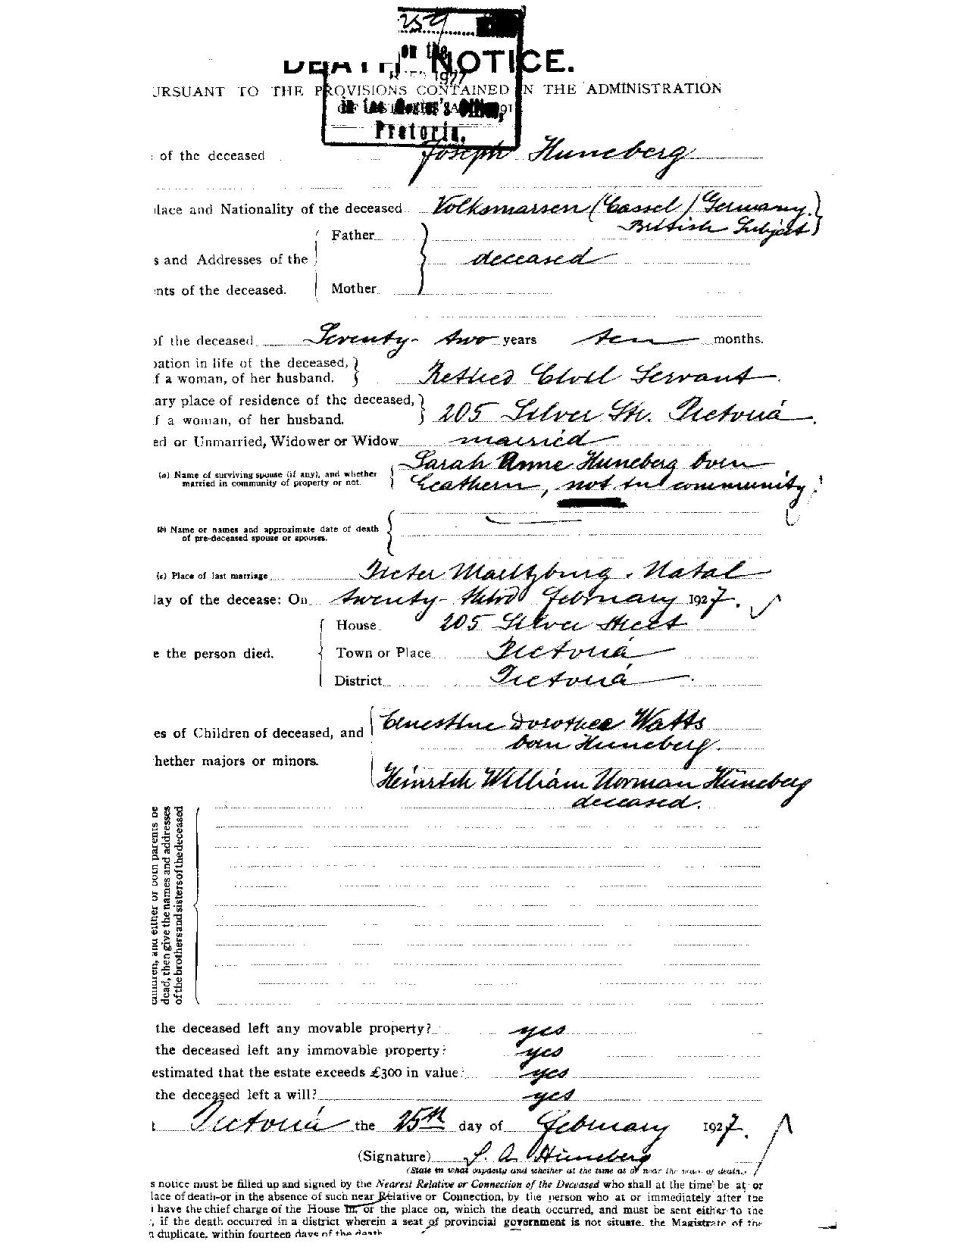 25th
on the
DEATH NOTICE.
1927
URSUANT TO THE PROVISIONS CONTAINED IN THE ADMINISTRATION
in the Master's Office,
Pretoria.
of the deceased Joseph Huneberg
lace and Nationality of the deceased Volksmarsen (Cassel / Germany.)
British Subject)
Father
s and Addresses of the deceased
nts of the deceased. Mother
of the deceased Seventy-two years ten months.
pation in life of the deceased,
f a woman, of her husband. Retired Civil Servant.
ary place of residence of the deceased,
f a woman, of her husband. 205 Silver Str. Pretoria.
ed or Unmarried, Widower or Widow married
(a) Name of surviving spouse (if any), and whether married in community of property or not. Sarah Anne Huneberg born
Leathern, not in community
(b) Name or names and approximate date of death
of pre-deceased spouse or spouses.
(c) Place of last marriage Pieter Maritzburg. Natal
lay of the decease: On twenty-third February 1927.
House 205 Silver Street
e the person died. Town or Place Pretoria
District Pretoria.
es of Children of deceased, and Ernestine Dorothea Watts
born Huneberg.
hether majors or minors.
Heinrich William Norman Huneberg
deceased.
children, and either or both parents be
dead, then give the names and addresses
of the brothers and sisters of the deceased
the deceased left any movable property? yes
the deceased left any immovable property? yes
estimated that the estate exceeds £300 in value? yes
the deceased left a will? yes
t Pretoria the 25th day of February 1927.
(Signature) S. A. Huneberg
(State in what capacity and whether at the time at or near the place of death.)
s notice must be filled up and signed by the Nearest Relative or Connection of the Deceased who shall at the time be at or
lace of death—or in the absence of such near Relative or Connection, by the person who at or immediately after the
have the chief charge of the House in, or the place on, which the death occurred, and must be sent either to the
, if the death occurred in a district wherein a seat of provincial government is not situate, the Magistrate of the
n duplicate, within fourteen days of the death